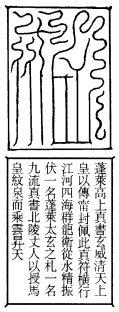 蓬萊高上真書玄威清天上
皇以傳甯封佩此真符橫行
江河四海群龍衛從水精振
伏一名蓬萊太玄之札一名
九流真書北陵丈人以授馬
皇紋泉而乘雲昇天